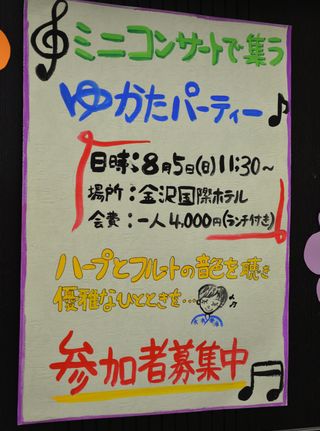 ミニコンサートで集う
ゆかたパーティー
日時:8月5日(日)11:30〜
場所:金沢国際ホテル
会費:一人4,000円(ランチ付き)
ハープとフルートの音色を聴き
優雅なひとときを…
参加者募集中